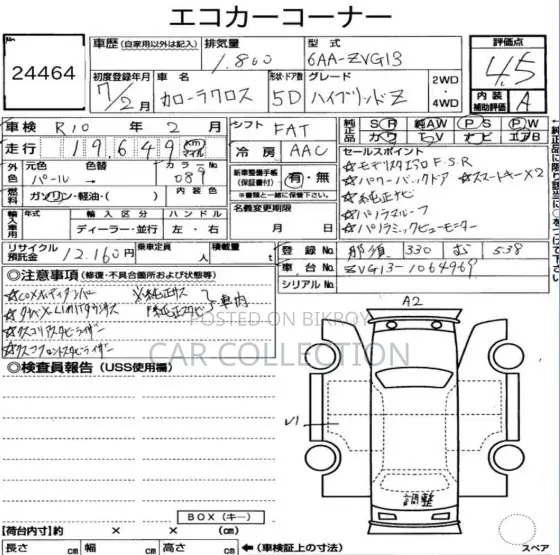 エコカーコーナー
No.
24464
車歴 (自家用以外は記入) 排気量 型式
1.800 6AA-ZVG13
評価点
4.5
初度登録年月 車名 形状・ドア数 グレード
7/2月 カローラクロス 5D ハイブリッドZ 2WD・4WD
内装補助評価 A
車検 R10年2月 シフト FAT
純正品 SR 純AW PS PW
カワ TV ナビ エアB
走行 19,649 km マイル 冷房 AAC
セールスポイント
外色 元色 色替 カラーNo.
パール → 089
新車整備手帳(保証書付) 有・無
※書類と一緒に保管下さい。
☆モデリスタエアロ F.S.R
☆パワーバックドア ☆スマートキー×2
☆純正ナビ
☆パノラマルーフ
☆パノラミックビューモニター
燃料 ガソリン・軽油・( ) 内装色
名義変更期限
月 日
輸入車用 年式 輸入区分 ハンドル
ディーラー・並行 左・右
リサイクル預託金 12,160円 乗車定員 人 積載量 t
登録No. 那須 330 む 538
車台No. ZVG13-1064969
シリアルNo.
◎注意事項 (修復・不具合箇所および状態等)
車内
A2
POSTED ON BIKROY
CAR COLLECTION
◎検査員報告 (USS使用欄)
U1
BOX(キー)
調整
【荷台内寸】約 × × cm
長さ cm 幅 cm 高さ cm ←(車検証上の寸法)
スペア